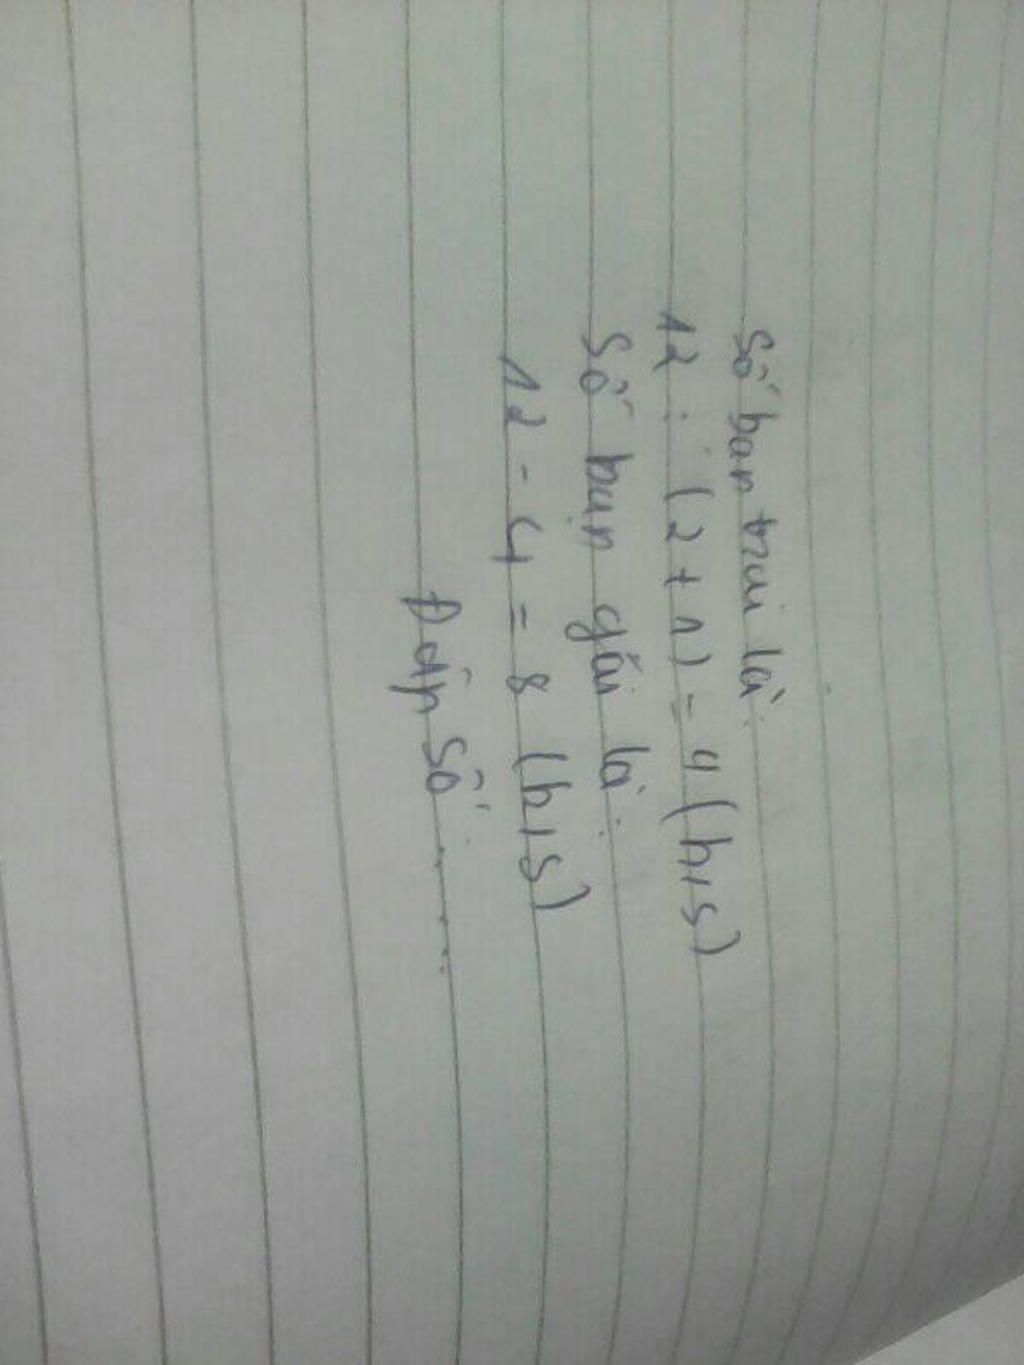 Số bạn trai là:
12 : (2+1) = 4 (h/s)
Số bạn gái là:
12 - 4 = 8 (h/s)
Đáp số: .....